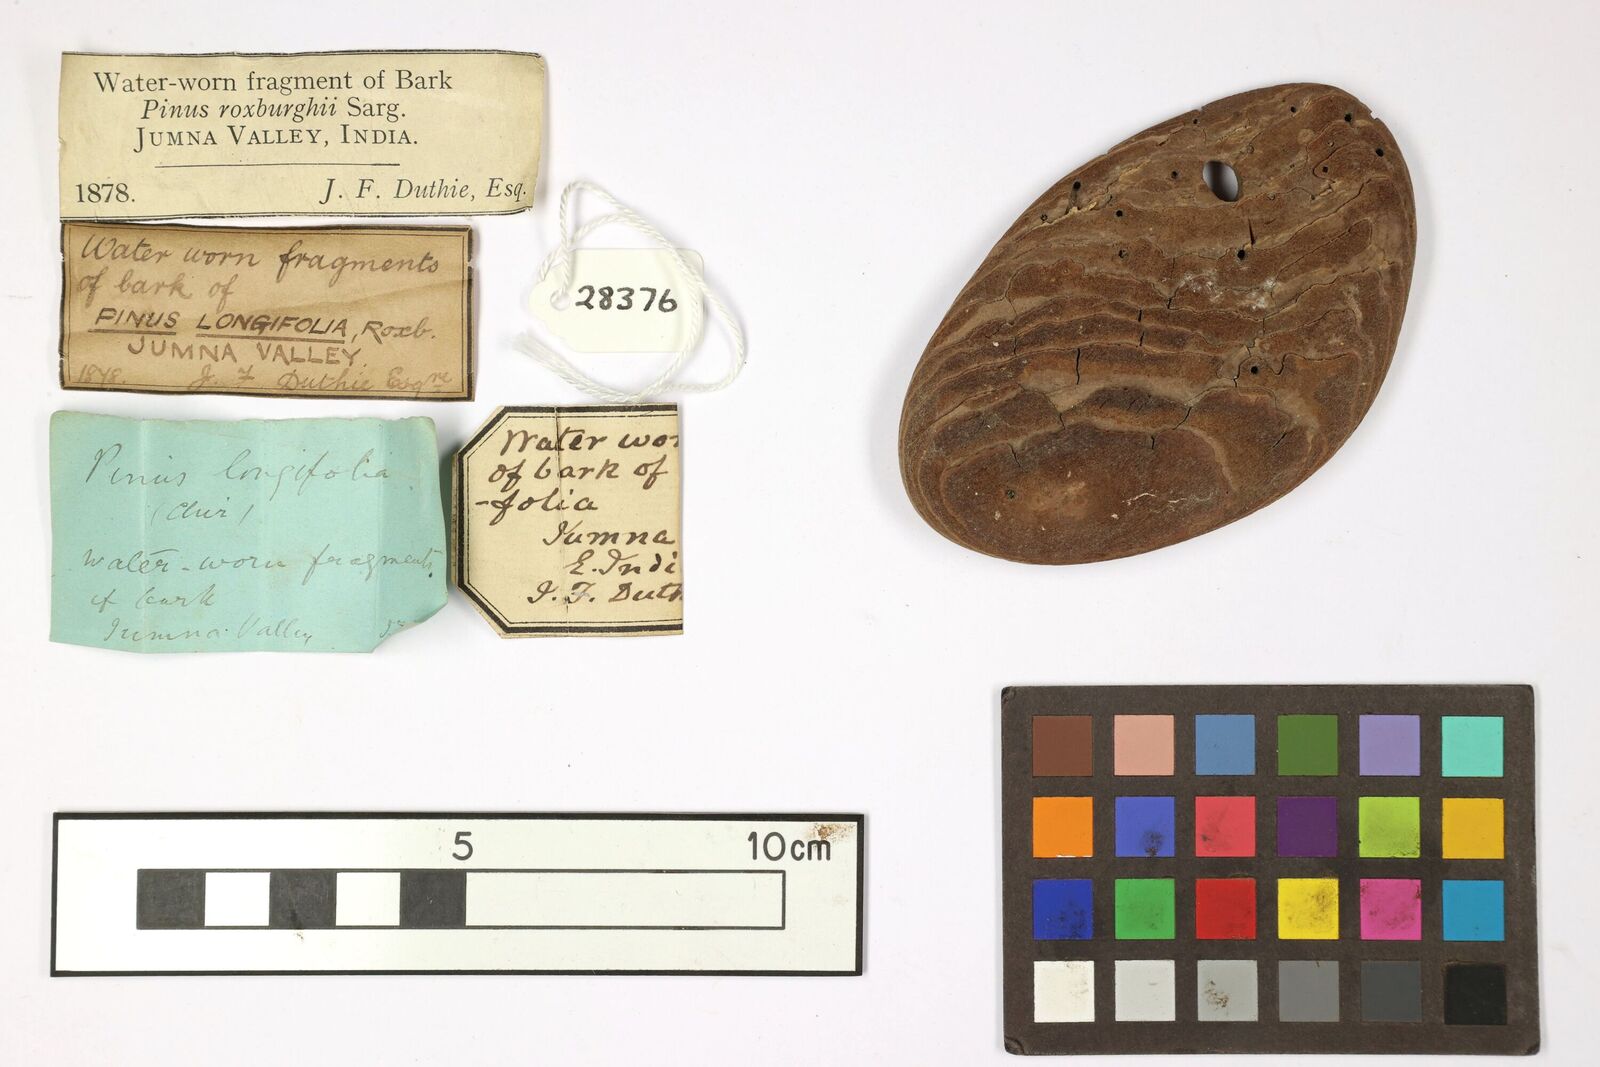 Water-worn fragment of Bark
Pinus roxburghii Sarg.
JUMNA VALLEY, INDIA.
1878. J. F. Duthie, Esq.
Water worn fragments
of bark of
PINUS LONGIFOLIA, Roxb.
JUMNA VALLEY
1878. J. F. Duthie Esqre
28376
Pinus longifolia
(Chir)
water-worn fragments
of bark
Jumna Valley
Water wor
of bark of
-folia
Jumna
E. Indi
J. F. Duth
5 10cm